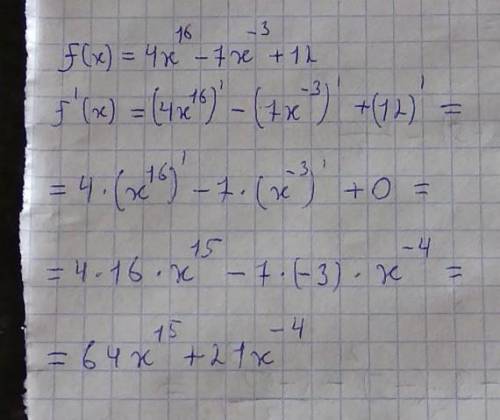 f(x) = 4x¹⁶ - 7x⁻³ + 12
f'(x) = (4x¹⁶)' - (7x⁻³)' + (12)' =
= 4 · (x¹⁶)' - 7 · (x⁻³)' + 0 =
= 4 · 16 · x¹⁵ - 7 · (-3) · x⁻⁴ =
= 64x¹⁵ + 21x⁻⁴